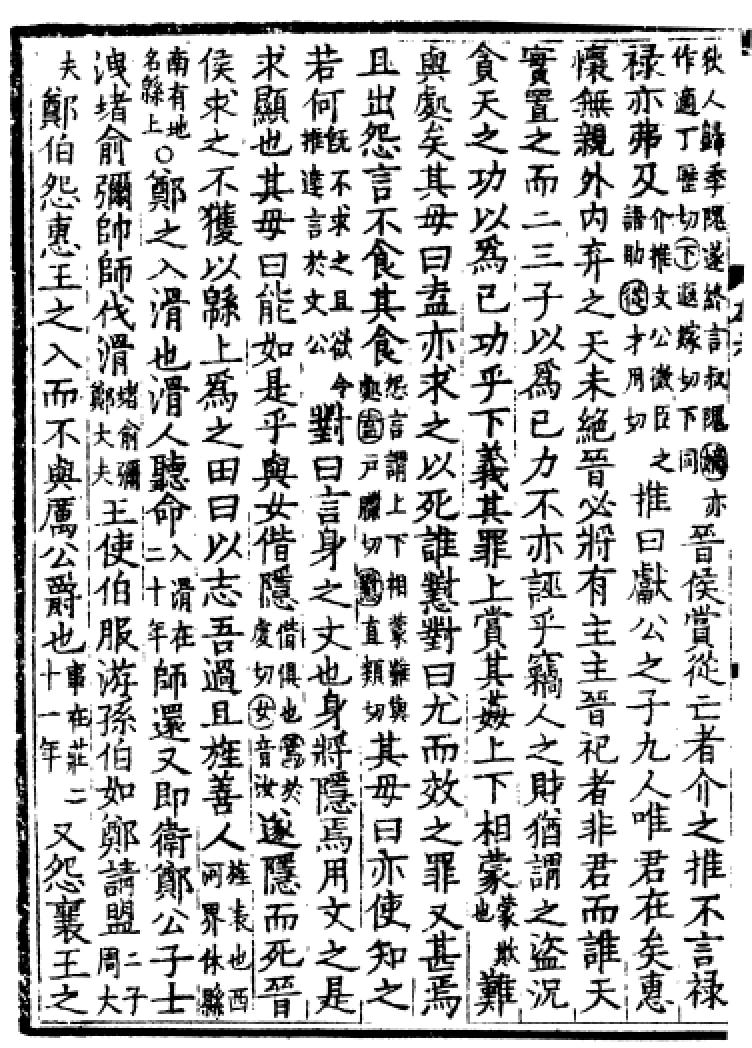 狄人歸季隗遂終言叔隗嫡亦作適丁歷切下遐嫁切下同晉侯賞從亡者介之推不言禄
禄亦弗及介推文公微臣之語助從才用切推曰獻公之子九人唯君在矣惠
懷無親外内弃之天未絶晉必將有主主晉祀者非君而誰天
實置之而二三子以爲己力不亦誣乎竊人之財猶謂之盜況
貪天之功以爲己功乎下義其罪上賞其姦上下相蒙蒙欺也難
與處矣其母曰盍亦求之以死誰懟對曰尤而效之罪又甚焉
且出怨言不食其食怨言謂上下相蒙難與處盍戸臘切懟直類切其母曰亦使知之
若何既不求之且欲令推達言於文公對曰言身之文也身將隱焉用文之是
求顯也其母曰能如是乎與女偕隱偕俱也焉於虔切女音汝遂隱而死晉
侯求之不獲以緜上爲之田曰以志吾過且旌善人旌表也西河界休縣
南有地名緜上○鄭之入滑也滑人聽命入滑在二十年師還又即衛鄭公子士
洩堵俞彌帥師伐滑堵俞彌鄭大夫王使伯服游孫伯如鄭請盟二子周大
夫鄭伯怨惠王之入而不與厲公爵也事在莊二十一年又怨襄王之